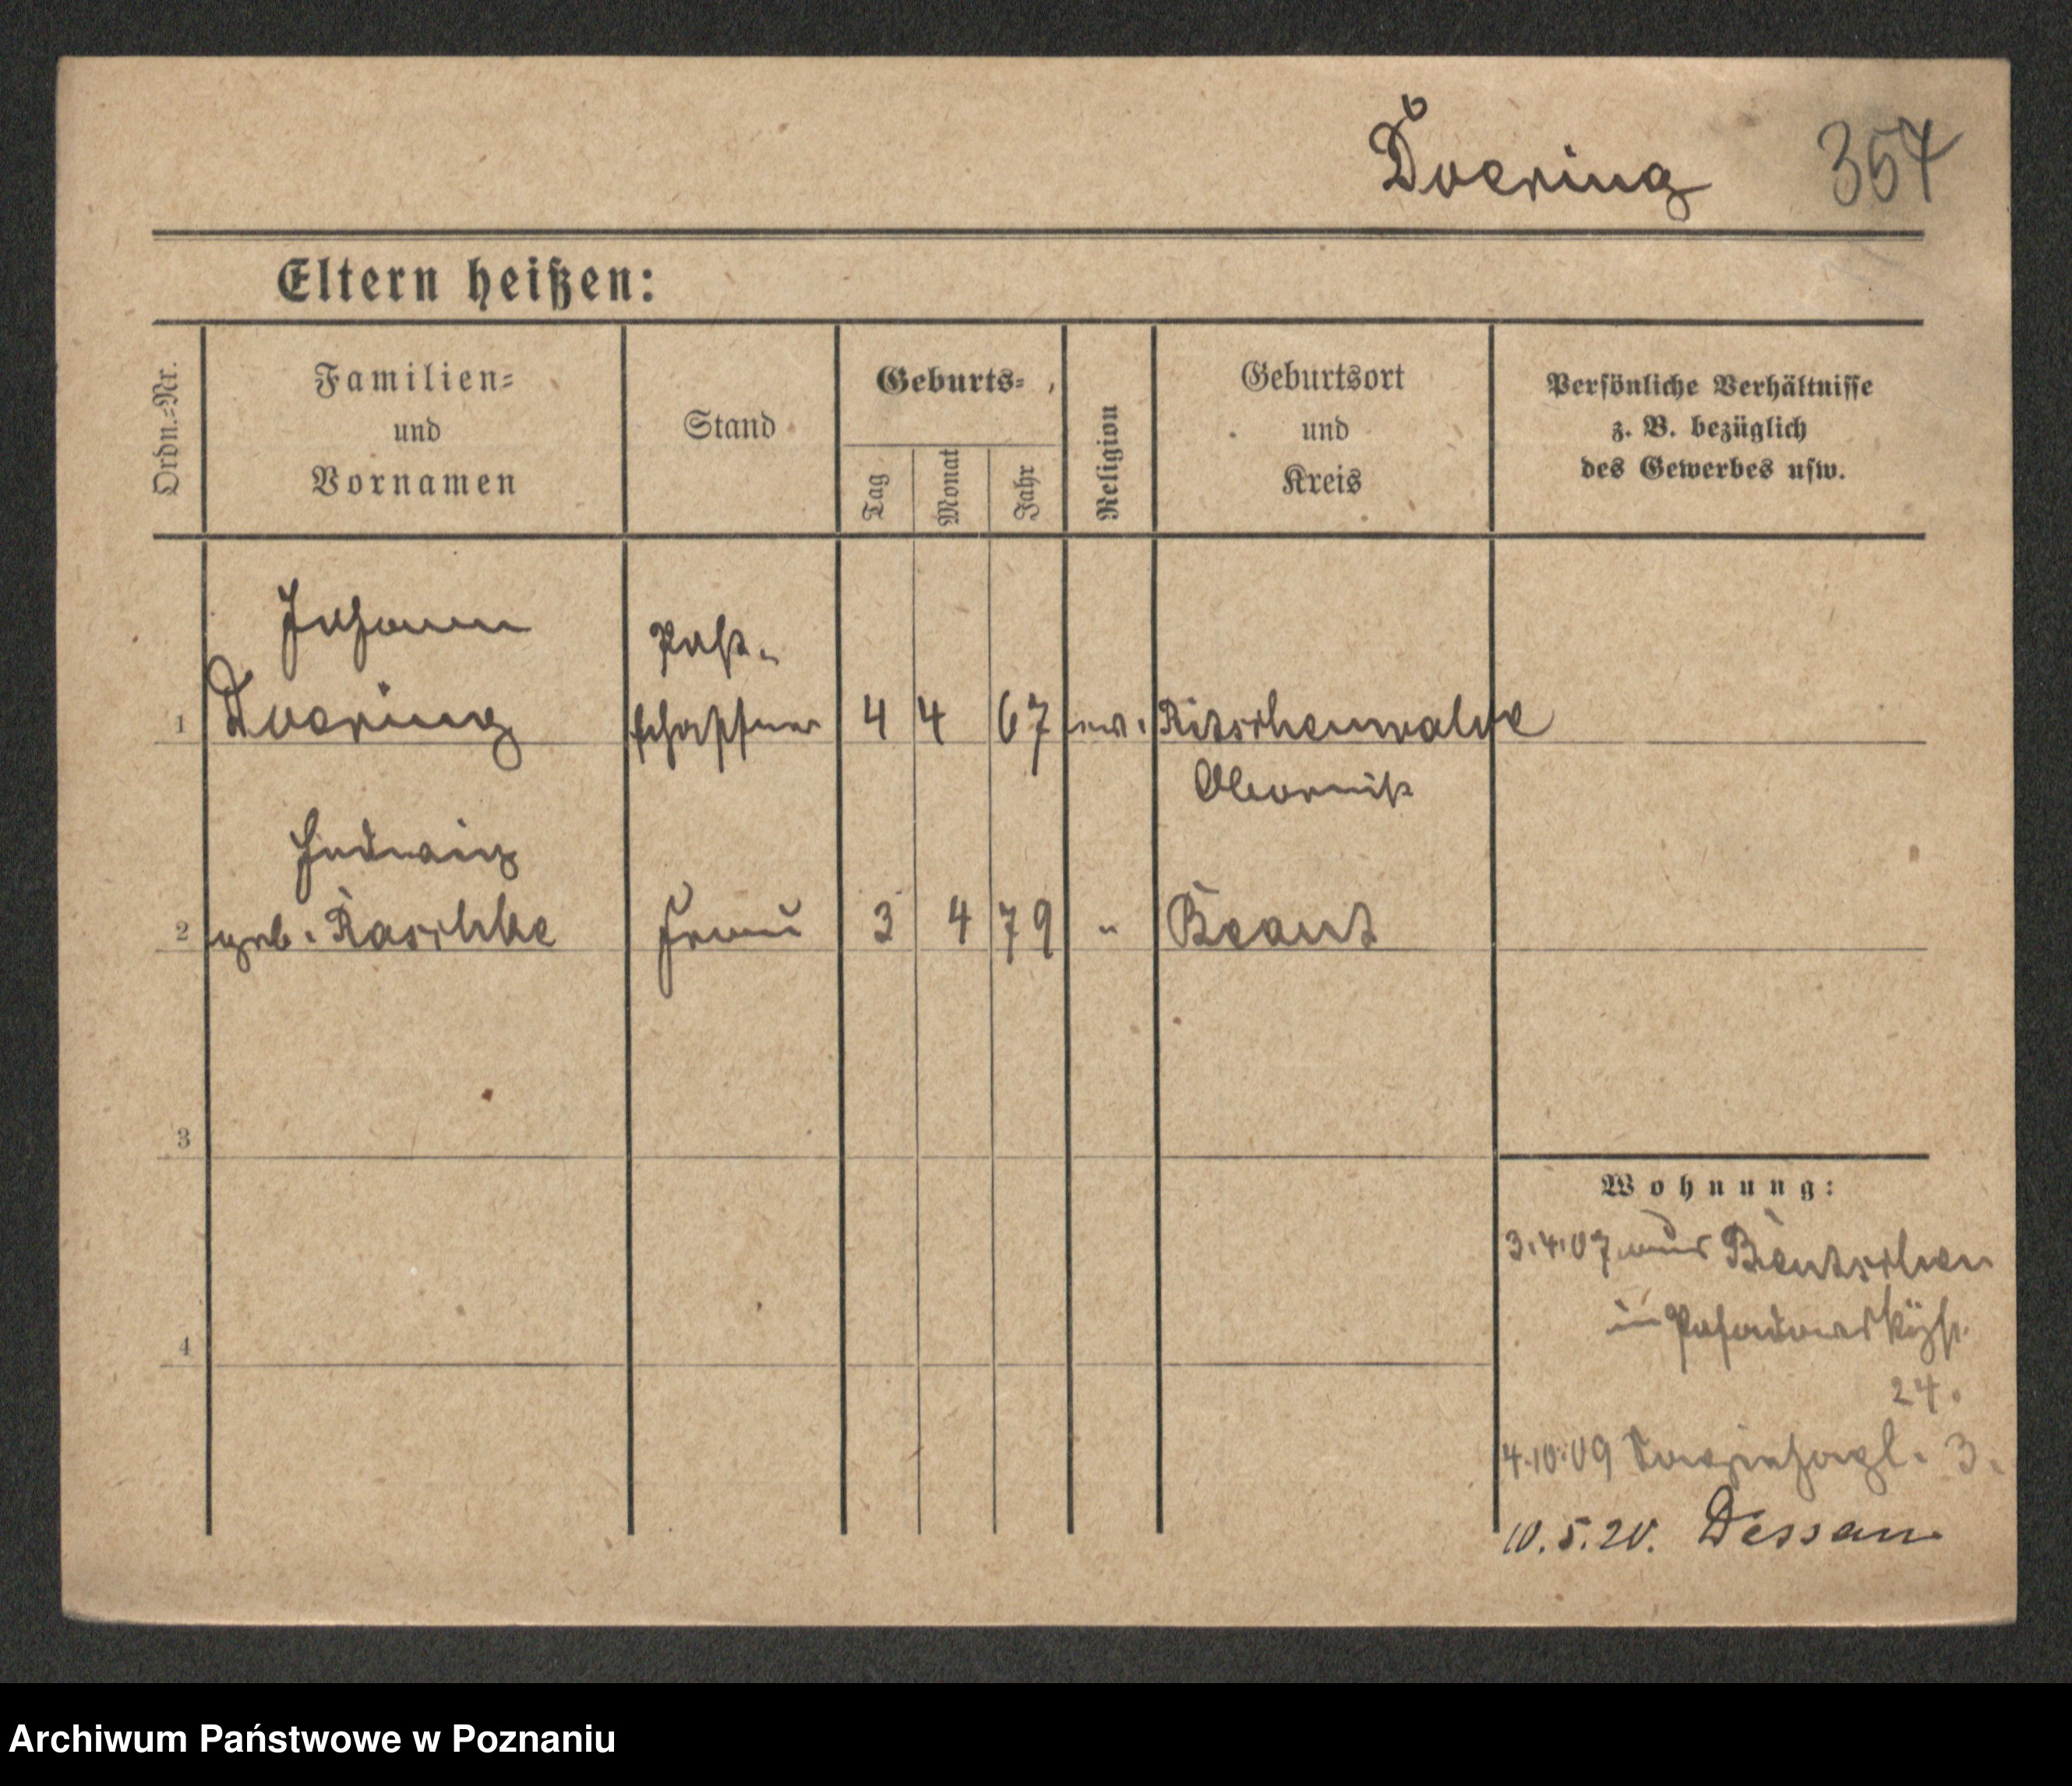 Doering 357
Eltern heißen:
Ordn.=Nr.
Familien=
und
Vornamen
Stand
Geburts=
Tag
Monat
Jahr
Religion
Geburtsort
und
Kreis
Persönliche Verhältnisse
z. B. bezüglich
des Gewerbes usw.
Johann
Post-
1 Doering schaffner 4 4 67 ev. Ritschenwalde
Obornik
Hedwig
2 geb. Raschke Frau 3 4 79 " Beaut
3
4
Wohnung:
3.4.07 aus Bentschen
in Posadowskystr.
24.
4.10.09 3.
10.5.20. Dessau
Archiwum Państwowe w Poznaniu